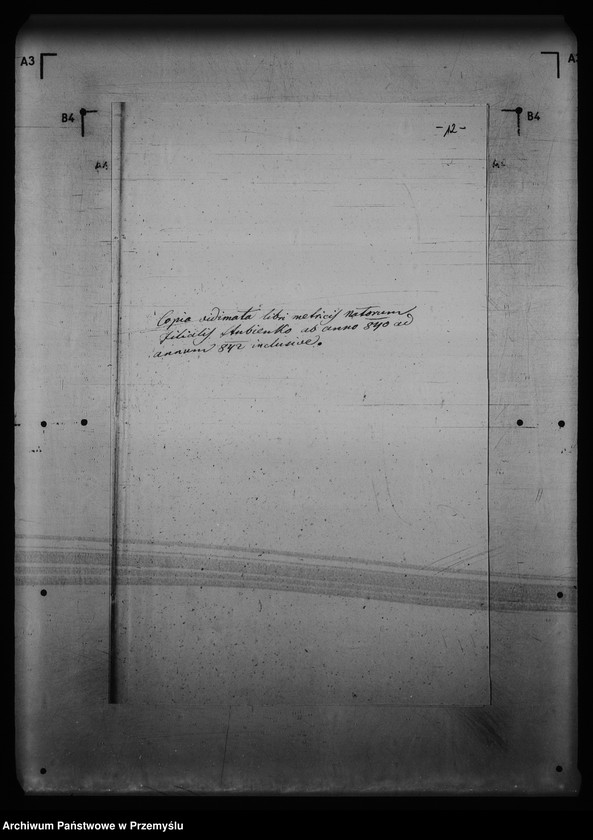 A3
B4
B4
-12-
Copia vidimata libri metricis Natorum
filialis Stubienko ab anno 840 ad
annum 842 inclusive.
Archiwum Państwowe w Przemyślu